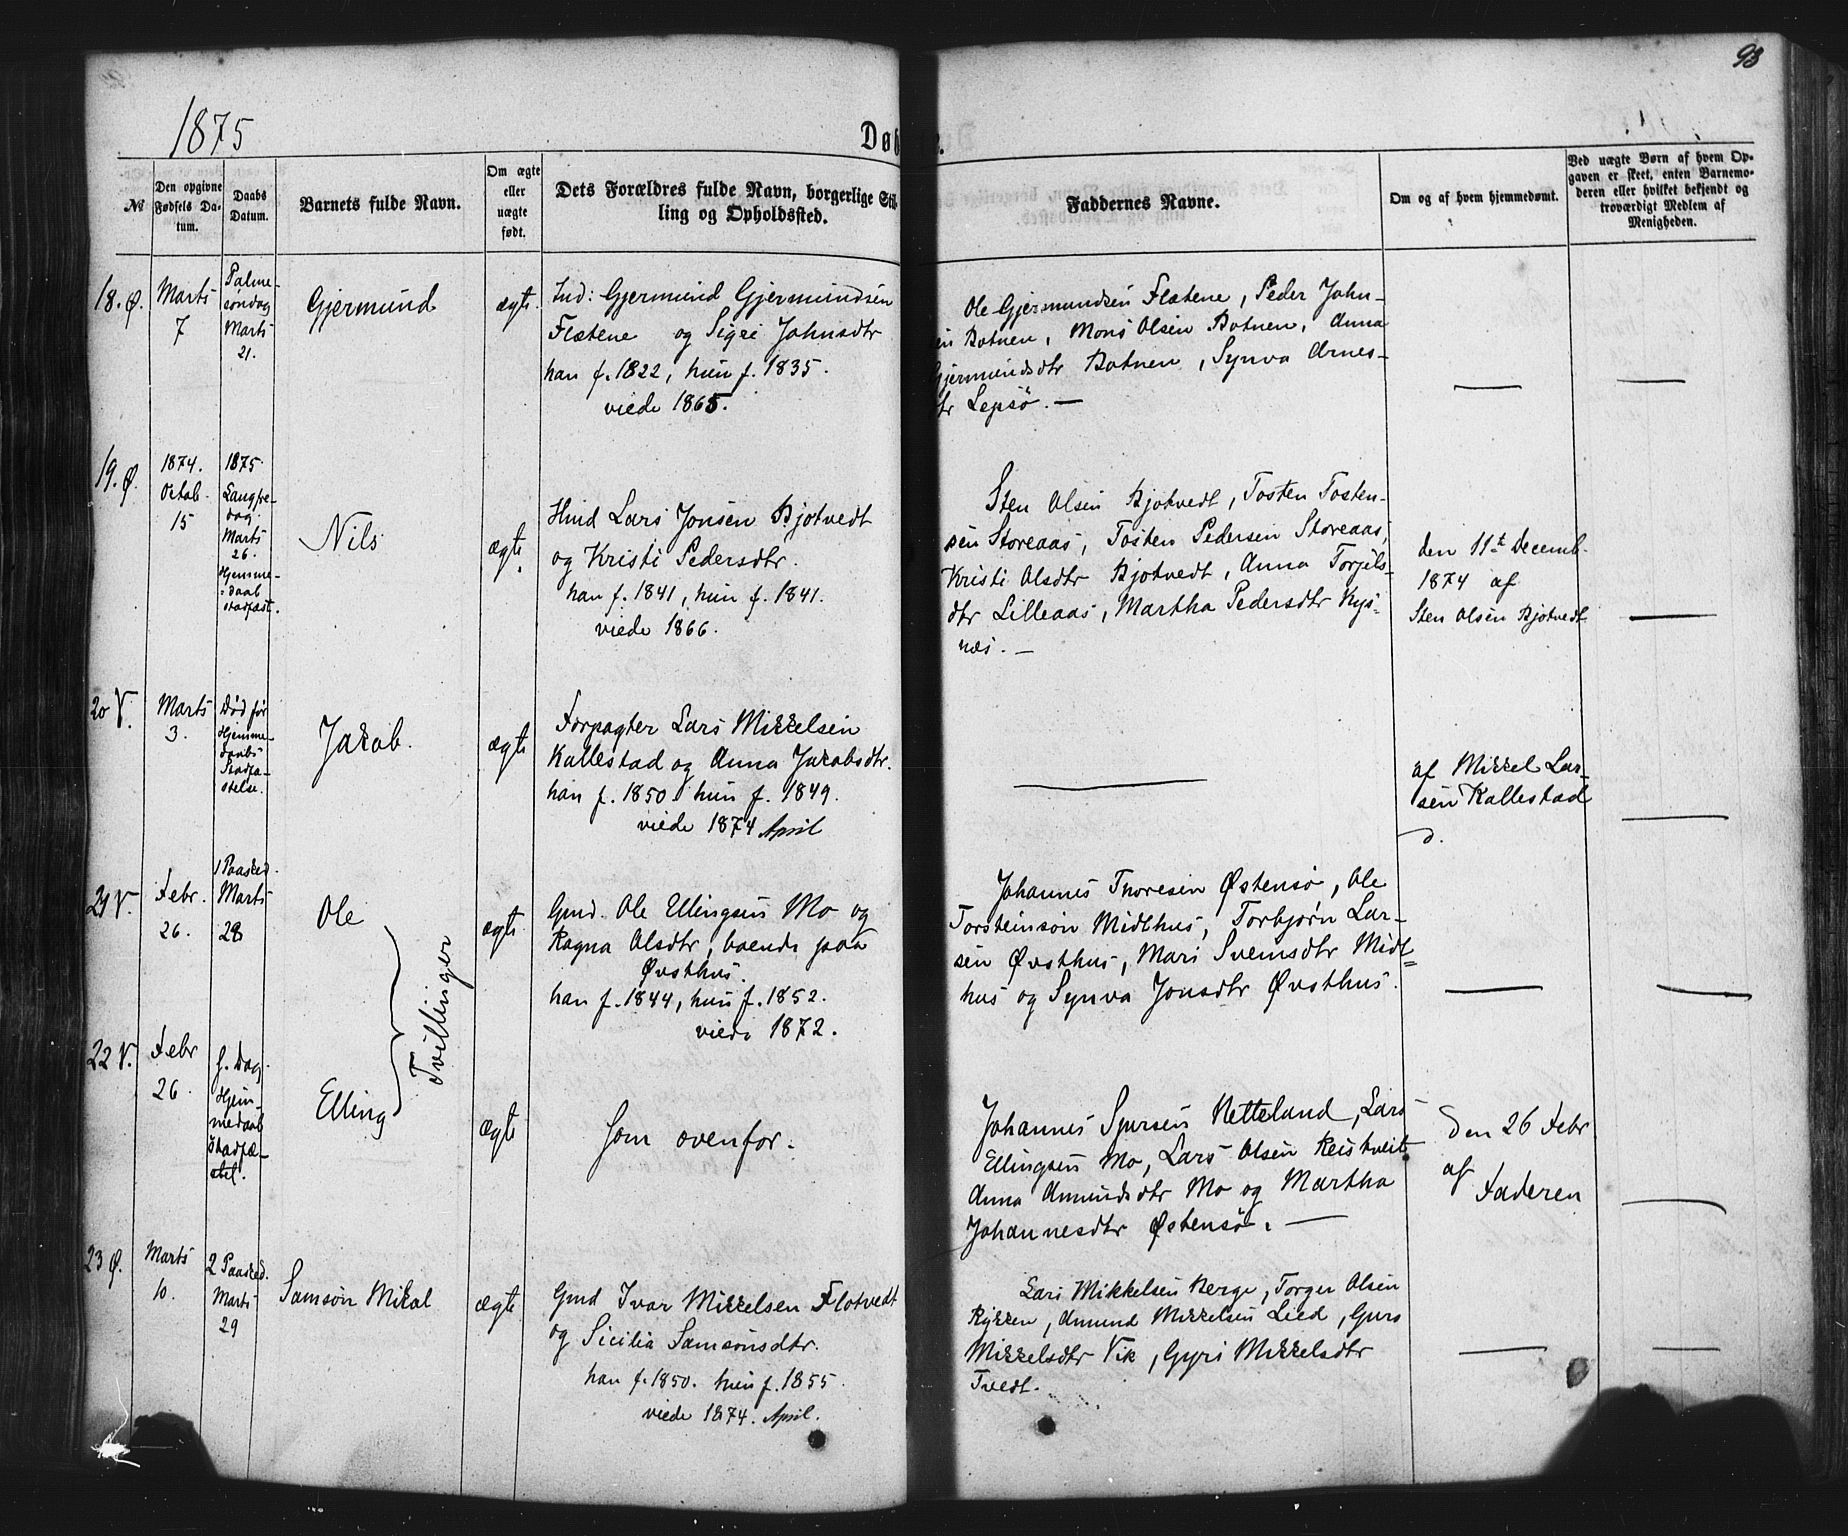 93
1875
Døb
e.
№
Den opgivne Fødsels Datum.
Daabs Datum.
Barnets fulde Navn.
Om ægte eller uægte født.
Dets Forældres fulde Navn, borgerlige Stilling og Opholdssted.
Faddernes Navne.
Om og af hvem hjemmedømt.
Ved uægte Børn af hvem Opgaven er skeet, enten Barnemoderen eller hvilket bekjendt og troværdigt Medlem af Menigheden.
18. Ø.
Marts
7
Palme-
søndag
Marts
21.
Gjermund
ægte
Ind: Gjermund Gjermundsen
Flætene og Sigri Johnsdtr
han f. 1822, hun f. 1835.
viede 1865.
Ole Gjermundsen Flætene, Peder John-
sen Botnen, Mons Olsen Botnen, Anna
Gjermundsdtr Botnen, Synva Arnes-
dtr Lepsø. —
19. Ø.
1874.
Octob.
15
1875.
Langfre-
dag
Marts
26.
Hjemme-
daab
stadfæst.
Nils
ægte.
Hmd Lars Jonsen Bjotvedt
og Kristi Pedersdtr.
han f. 1841, hun f. 1841.
viede 1866.
Sten Olsen Bjotvedt, Tosten Tosten-
sen Storeaas, Tosten Pedersen Storeaas,
Kristi Olsdtr Bjotvedt, Anna Torjils-
dtr Lilleaas, Martha Pedersdtr Kys-
næs. —
den 11te Decemb.
1874 af
Sten Olsen Bjotvedt
20 V.
Marts
3.
Død før
Hjemme-
daabs
Stadfæ-
stelse.
Jakob.
ægte
Forpagter Lars Mikkelsen
Kallestad og Anna Jakobsdtr.
han f. 1850 hun f. 1849.
viede 1874 April
af Mikkel Lar-
sen Kallestad
21 V.
Febr.
26.
1 Paasked.
Marts
28
Ole
Tvillinger
ægte
Gmd. Ole Ellingsen Mo og
Ragna Olsdtr, boende paa
Øvsthus.
han f. 1844, hun f. 1852.
viede 1872.
Johannes Thoresen Østensø, Ole
Torsteinson Midthus, Torbjørn Lar-
sen Øvsthus, Mari Svensdtr Midt-
hus og Synva Jonsdtr Øvsthus.
22 V.
Febr
26.
s. Dag.
Hjem-
medaab
Stadfæ-
stet.
Elling
ægte
Som ovenfor.
Johannes Sjursen Netteland, Lars
Ellingsen Mo, Lars Olsen Reistveit
Anna Amundsdtr Mo og Martha
Johannesdtr Østensø. —
den 26 Febr
af
Faderen
23 Ø.
Marts
10.
2 Paasked.
Marts
29
Samson Mikal
ægte
Gmd Ivar Mikkelsen Flotvedt
og Sicilia Samsonsdtr.
han f. 1850. hun f. 1855.
viede 1874. April.
Lars Mikkelsen Berge, Torger Olsen
Rykken, Amund Mikkelsen Lied, Guro
Mikkelsdtr Vik, Gyri Mikkelsdtr
Tvedt.